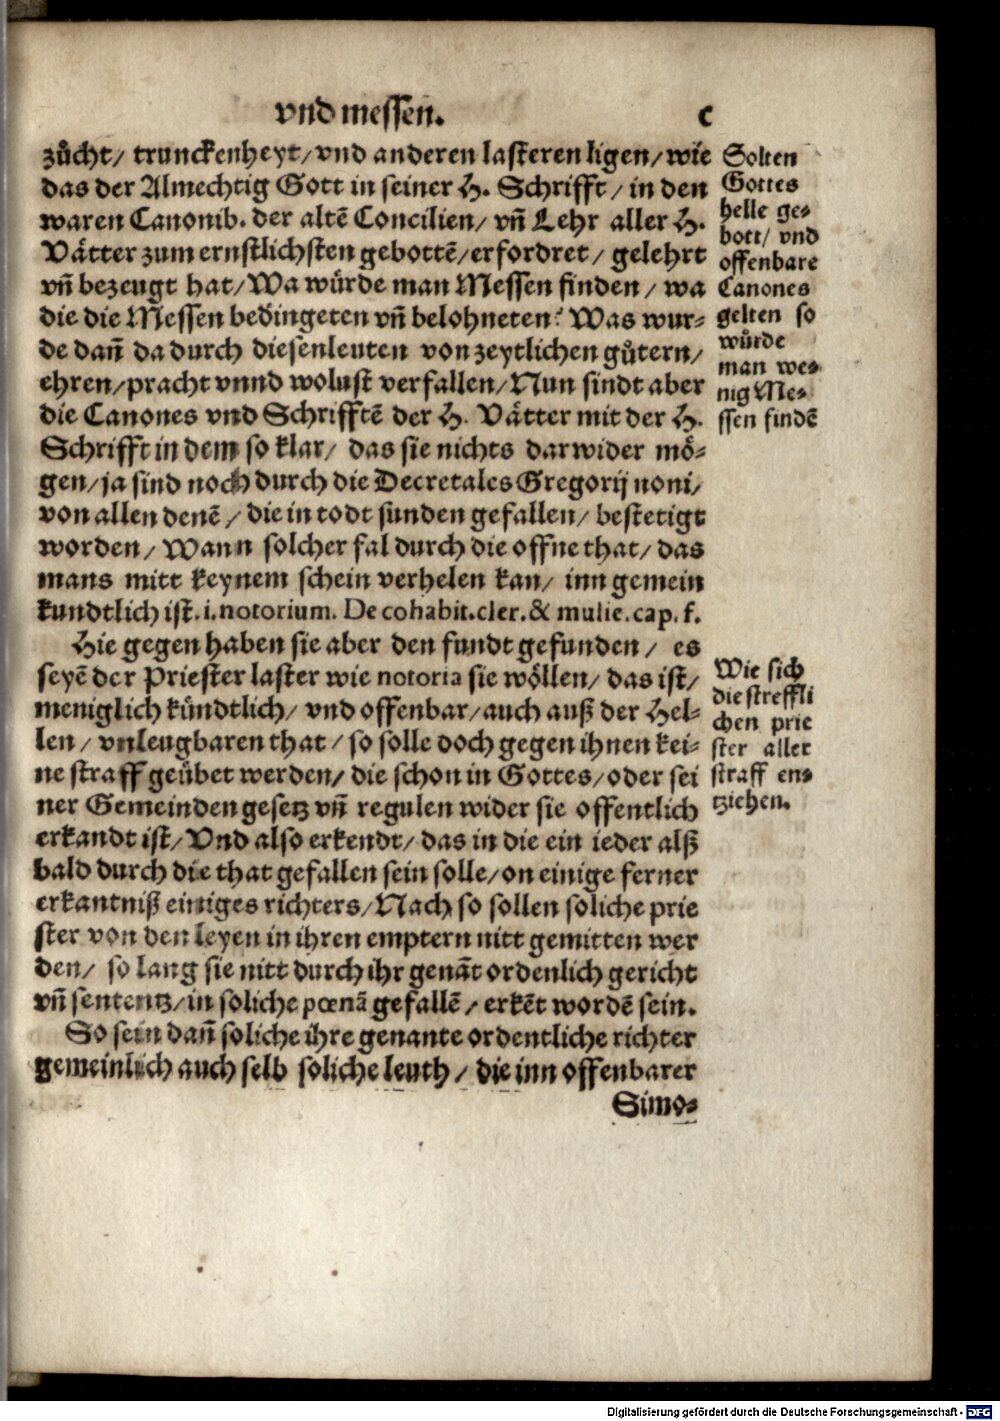 vnd messen. c
zůcht/ trunckenheyt/ vnd anderen lasteren ligen/ wie
das der Almechtig Gott in seiner H. Schrifft/ in den
waren Canonib. der altē Concilien/ vñ Lehr aller H.
Vätter zum ernstlichsten gebottē/ erfordret/ gelehrt
vñ bezeugt hat/ Wa würde man Messen finden/ wa
die die Messen bedingeten vñ belohneten? Was wur⸗
de dañ da durch diesenleuten von zeytlichen gůtern/
ehren/ pracht vnnd wolust verfallen/ Nun sindt aber
die Canones vnd Schrifftē der H. Vätter mit der H.
Schrifft in dem so klar/ das sie nichts darwider mö⸗
gen/ ja sind noch durch die Decretales Gregorij noni/
von allen denē/ die in todt sunden gefallen/ bestetigt
worden/ Wann solcher fal durch die offne that/ das
mans mitt keynem schein verhelen kan/ inn gemein
kundtlich ist. i. notorium. De cohabit. cler. & mulie. cap. f.
Hie gegen haben sie aber den fundt gefunden/ es
seyē der Priester laster wie notoria sie wöllen/ das ist/
meniglich kündtlich/ vnd offenbar/ auch auß der Hel⸗
len/ vnleugbaren that/ so solle doch gegen ihnen kei⸗
ne straff geübet werden/ die schon in Gottes/ oder sei
ner Gemeinden gesetz vñ regulen wider sie offentlich
erkandt ist/ Vnd also erkendt/ das in die ein ieder alß
bald durch die that gefallen sein solle/ on einige ferner
erkantniß einiges richters/ Nach so sollen soliche prie
ster von den leyen in ihren emptern nitt gemitten wer
den/ so lang sie nitt durch ihr genāt ordenlich gericht
vñ sententz/ in soliche pœnā gefallē/ erkēt wordē sein.
So sein dañ soliche ihre genante ordentliche richter
gemeinlich auch selb soliche leuth/ die inn offenbarer
Simo⸗
Solten
Gottes
helle ge⸗
bott/ vnd
offenbare
Canones
gelten so
würde
man we⸗
nig Me⸗
ssen findē
Wie sich
die streffli
chen prie
ster aller
straff en⸗
tziehen.
Digitalisierung gefördert durch die Deutsche Forschungsgemeinschaft - DFG